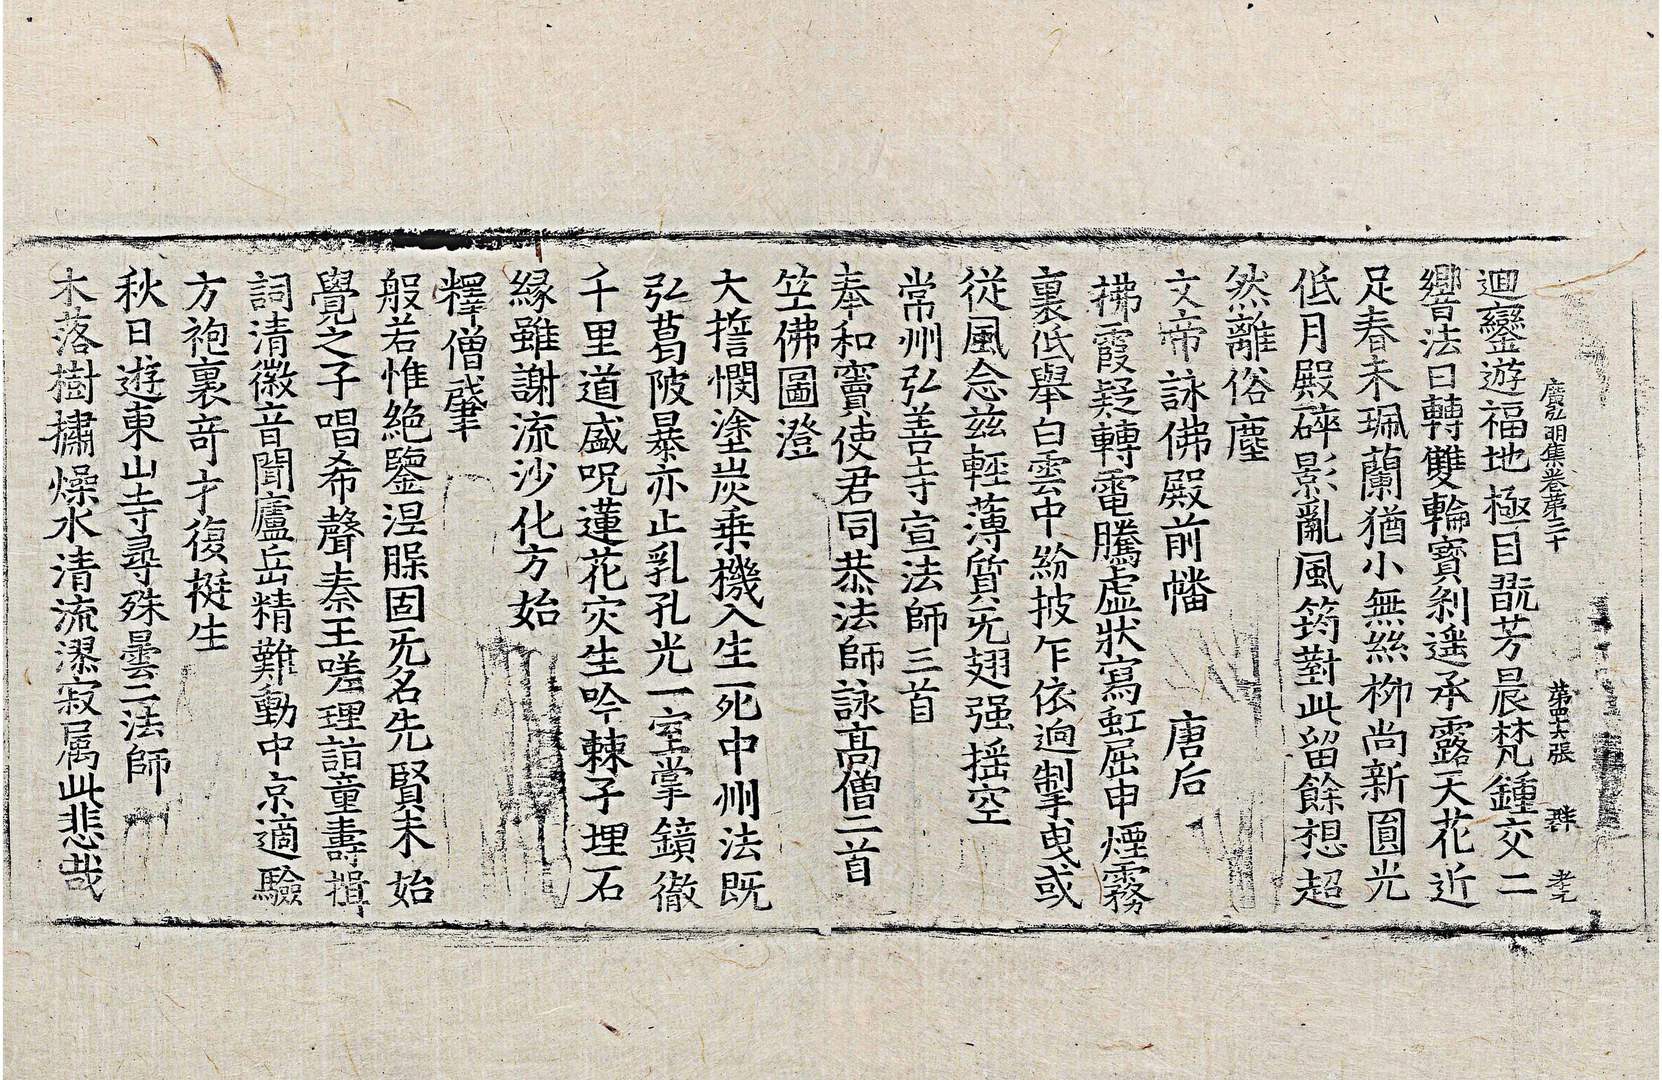 廣弘明集卷第三十　第四十六張　群　孝兄
迴鑾遊福地極目翫芳晨梵鍾交二
響法日轉雙輪寶剎遥承露天花近
足春未珮蘭猶小無絲柳尚新圓光
低月殿碎影亂風筠對此留餘想超
然離俗塵
文帝詠佛殿前幡　唐后
拂霞疑轉電騰虛狀寫虹屈申煙霧
裏低舉白雲中紛披乍依迥掣曳或
從風念茲輕薄質无翅强摇空
常州弘善寺宣法師三首
奉和竇使君同恭法師詠髙僧二首
竺佛圖澄
大誓憫塗炭乗機入生死中州法既
弘葛陂暴亦止乳孔光一室掌鏡徹
千里道盛呪蓮花灾生吟棘子埋石
緣雖謝流沙化方始
釋僧肇
般若惟絶鑒涅槃固无名先賢未始
覺之子唱希聲秦王嗟理詣童壽揖
詞清徽音聞廬岳精難動中京適驗
方袍裏竒才復挺生
秋日遊東山寺尋殊曇二法師
木落樹擂燥水清流㵎寂属此悲哉